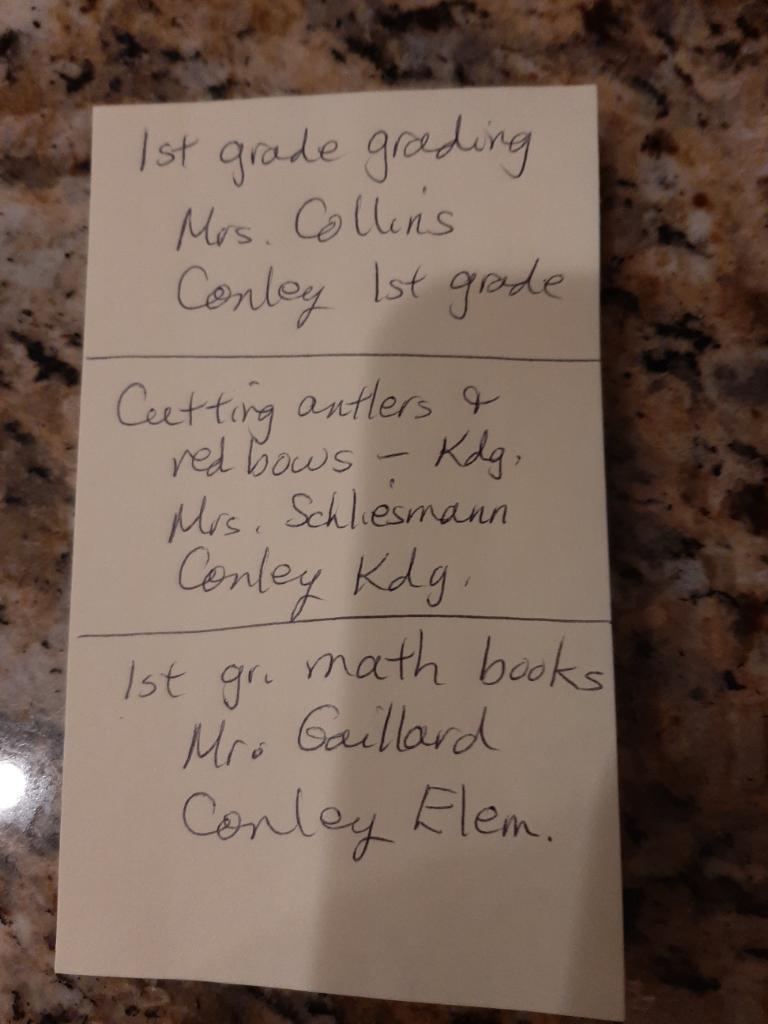 1st grade grading
Mrs. Collins
Conley 1st grade
Cutting antlers &
red bows - Kdg.
Mrs. Schliesmann
Conley Kdg.
1st gr. math books
Mr. Gaillard
Conley Elem.